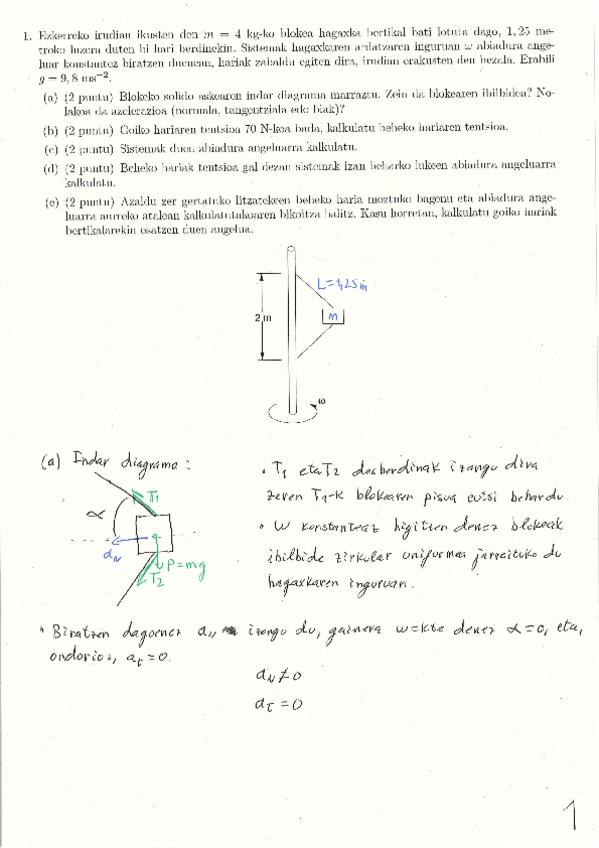 1. Ezkerreko irudian ikusten den m = 4 kg-ko blokea hagaxka bertikal bati lotuta dago, 1,25 me-
troko luzera duten bi hari berdinekin. Sistemak hagaxkaren ardatzaren inguruan ω abiadura ange-
luar konstantez biratzen duenean, hariak zabaldu egiten dira, irudian erakusten den bezala. Erabili
g = 9,8 ms⁻².
(a) (2 puntu) Blokeko solido askearen indar diagrama marraztu. Zein da blokearen ibilbidea? No-
lakoa da azelerazioa (normala, tangentziala edo biak)?
(b) (2 puntu) Goiko hariaren tentsioa 70 N-koa bada, kalkulatu beheko hariaren tentsioa.
(c) (2 puntu) Sistemak duen abiadura angeluarra kalkulatu.
(d) (2 puntu) Beheko hariak tentsioa gal dezan sistemak izan beharko lukeen abiadura angeluarra
kalkulatu.
(e) (2 puntu) Azaldu zer gertatuko litzatekeen beheko haria moztuko bagenu eta abiadura ange-
luarra aurreko atalean kalkulatutakoaren bikoitza balitz. Kasu horretan, kalkulatu goiko hariak
bertikalarekin osatzen duen angelua.
L=1,25m
2 m
m
ω
(a) Indar diagrama:
T1
α
aN
P=mg
T2
• T1 eta T2 desberdinak izango dira
zeren T1-k blokearen pisua eutsi behar du.
• W konstanteaz higitzen denez blokeak
ibilbide zirkular uniformea jarraituko du
hagaxkaren inguruan.
• Biratzen dagoenez aN izango du, gainera w=kte denez α=0, eta,
ondorioz, at=0.
aN≠0
aT=0
1